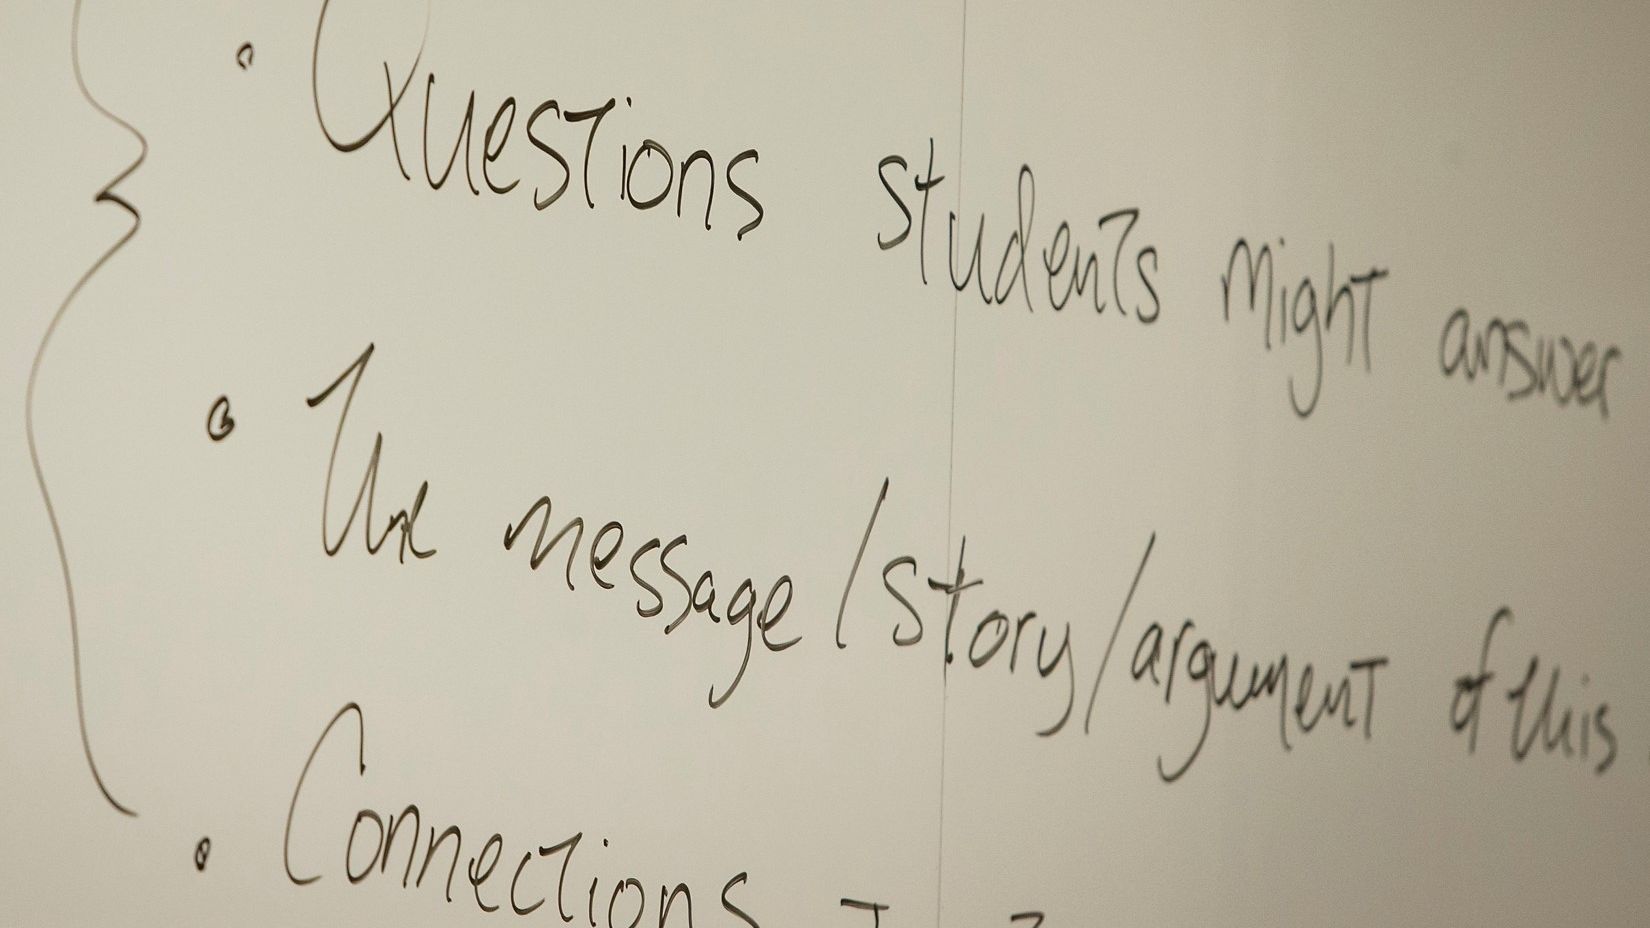 • Questions students might answer
• The message/story/argument of this
• Connections